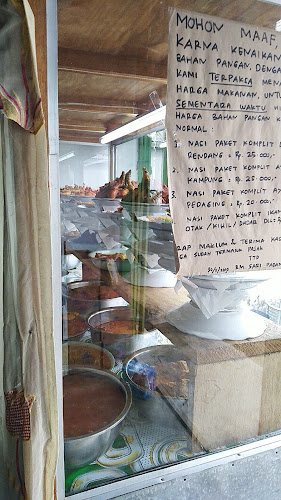 MOHON MAAF,
KARNA KENAIKAN
BAHAN PANGAN, DENGA
KAMI TERPAKSA MENA
HARGA MAKANAN, UNTU
SEMENTARA WAKTU, HI
HARGA BAHAN PANGAN K
NORMAL :
1. NASI PAKET KOMPLIT D
RENDANG : Rp. 25.000,-
2. NASI PAKET KOMPLIT A
KAMPUNG : Rp. 25.000,-
3. NASI PAKET KOMPLIT AY
PEDAGING : Rp. 20.000,-
NASI PAKET KOMPLIT IKAN
OTAK/KIKIL/DADAR DLL: R
RAP MAKLUM & TERIMA KAS
GA SUDAH TERMASUK PAJAK
TTD
RM. SARI PADAN